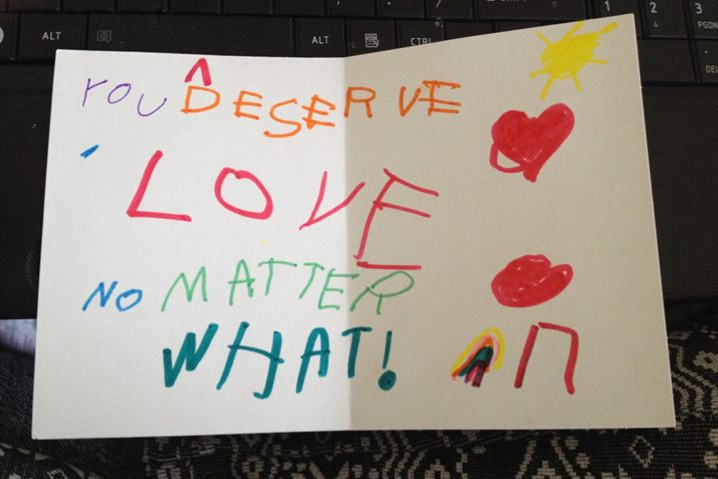 ALT
ALT
CTRL
1
2
3
PGDN
YOU DESERVE
LOVE
NO MATTER
WHAT!